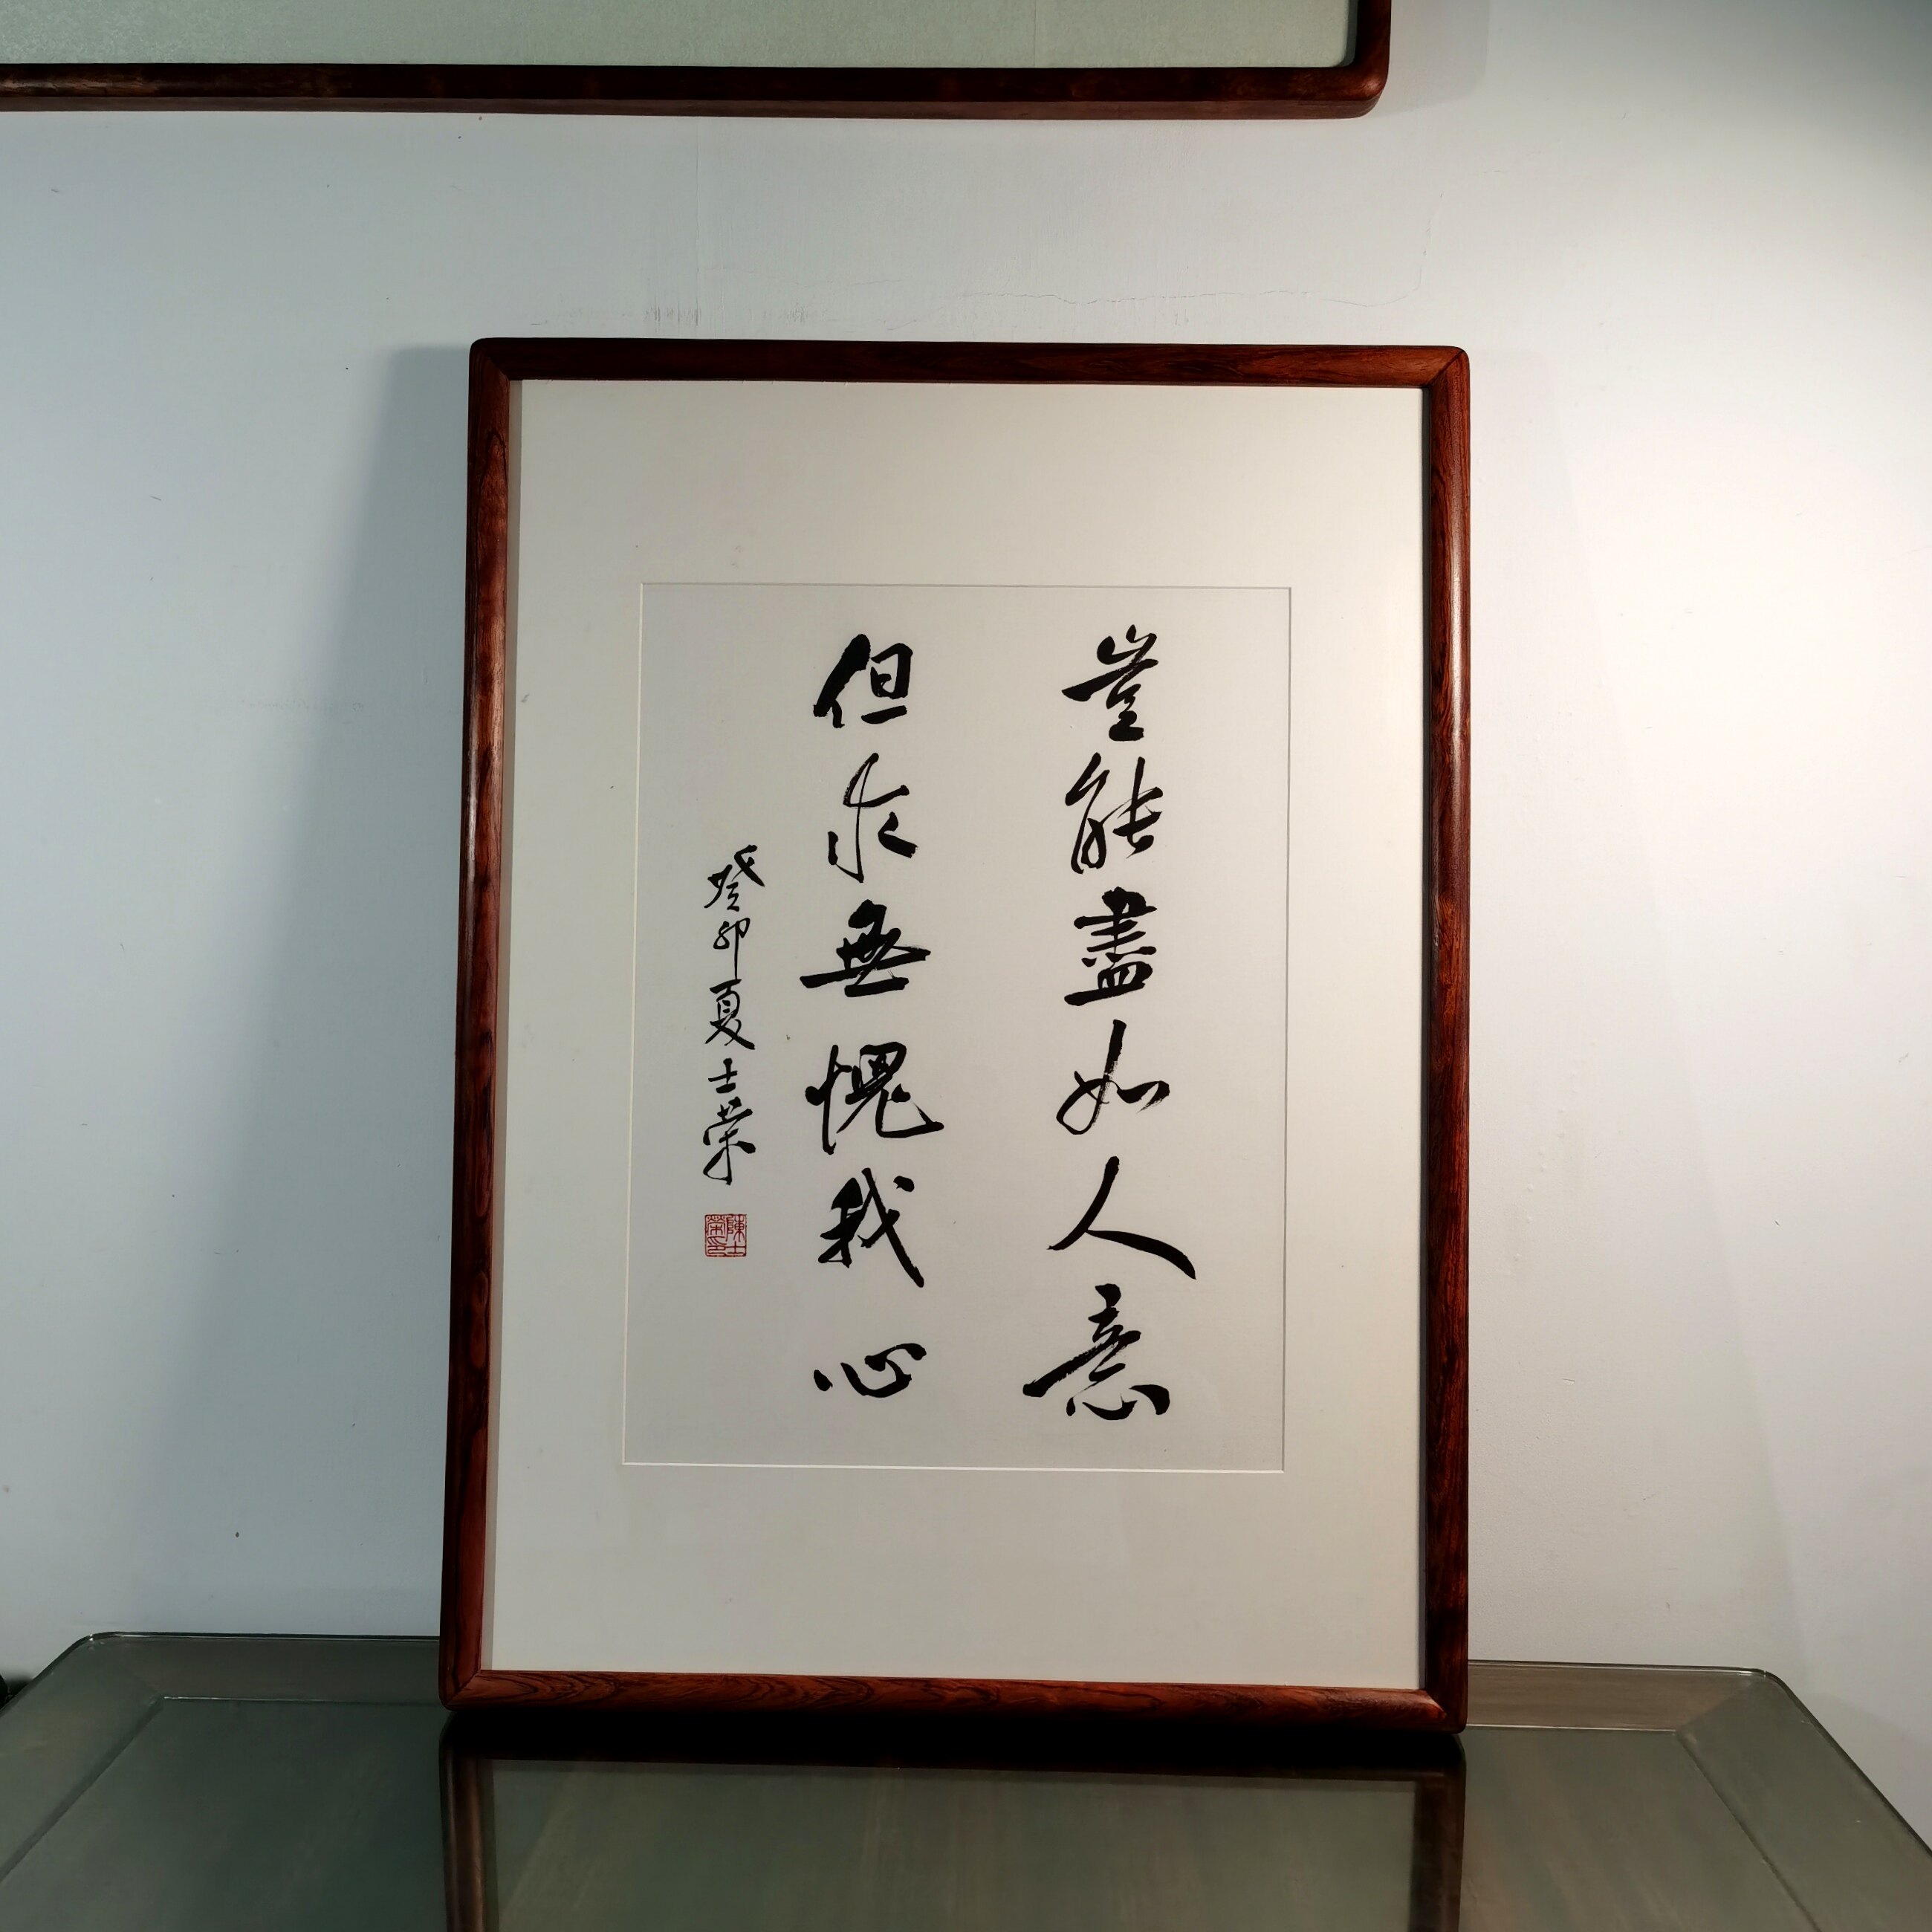 豈能盡如人意
但求無愧我心
癸卯夏士荣
陳士荣印